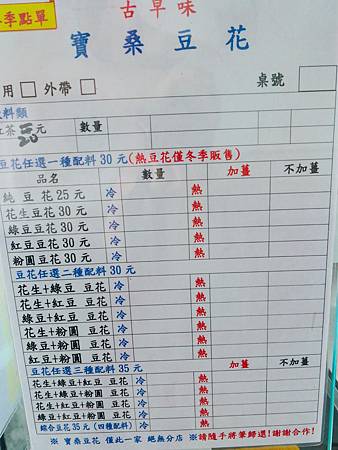 冬季點單
古早味
寶桑豆花
用□ 外帶□ 桌號□
料類
紅茶 20 元 數量
豆花任選一種配料30元(熱豆花僅冬季販售)
品名 數量 加薑 不加薑
純 豆 花 25 元 冷 熱
花生豆花 30 元 冷 熱
綠豆豆花 30 元 冷 熱
紅豆豆花30 元 冷 熱
粉圓豆花 30 元 冷 熱
豆花任選二種配料30元
花生+綠豆 豆花 冷 熱
花生+紅豆 豆花 冷 熱
綠豆+紅豆 豆花 冷 熱
花生+粉圓 豆花 冷 熱
綠豆+粉圓 豆花 冷 熱
紅豆+粉圓 豆花 冷 熱
豆花任選三種配料 35元 加薑 不加薑
花生+綠豆+紅豆 豆花 冷 熱
花生+綠豆+粉圓 豆花 冷 熱
花生+紅豆+粉圓 豆花 冷 熱
綠豆+紅豆+粉圓 豆花 冷 熱
綜合豆花35元 (四種配料) 冷 熱
※ 寶桑豆花 僅此一家 絕無分店 ※請隨手將筆歸還!謝謝合作!